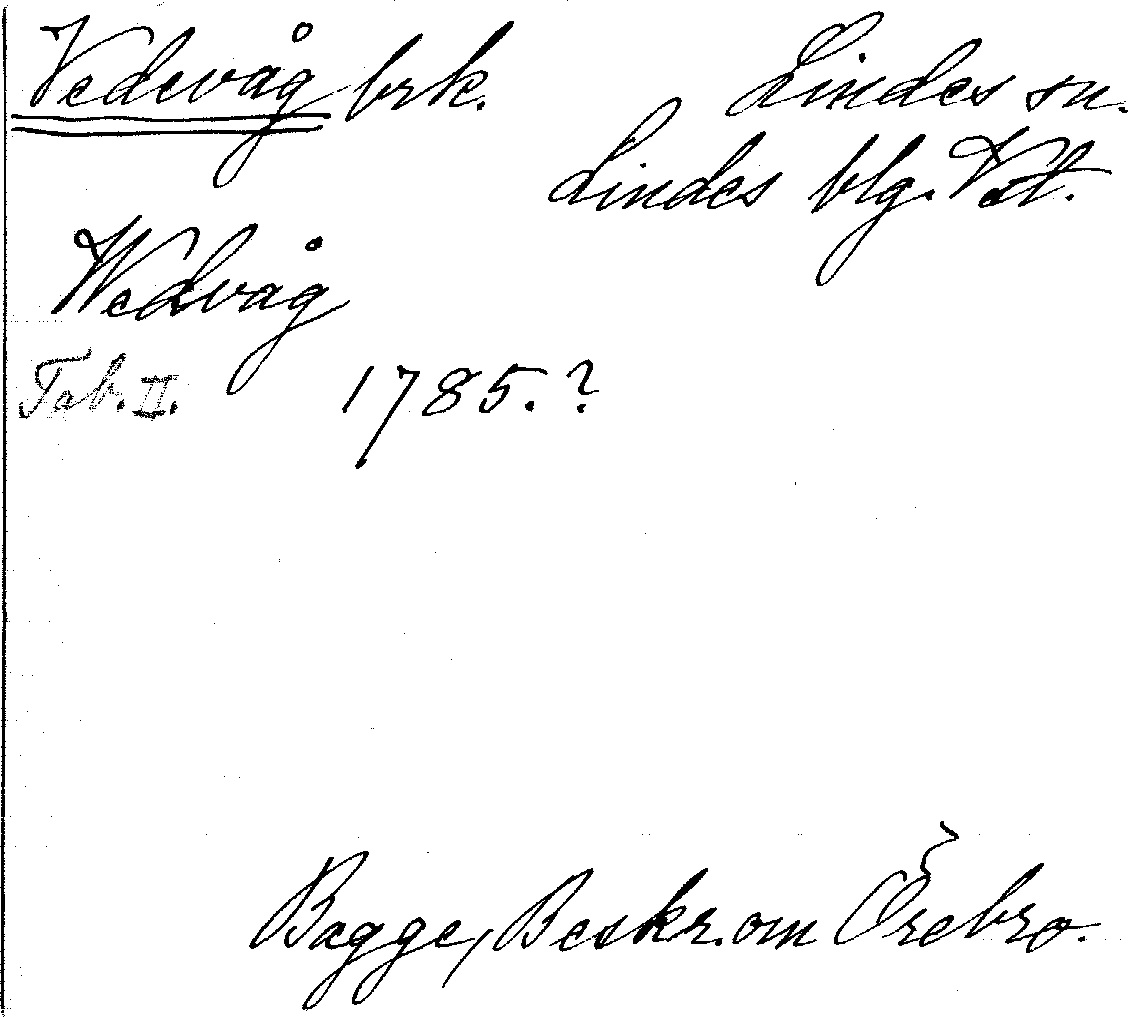 Vedevåg brk. Lindes sn.
Lindes blg. Vstt.
Wedvåg
Tab. II. 1785.?
Bagge, Beskr. om Örebro.